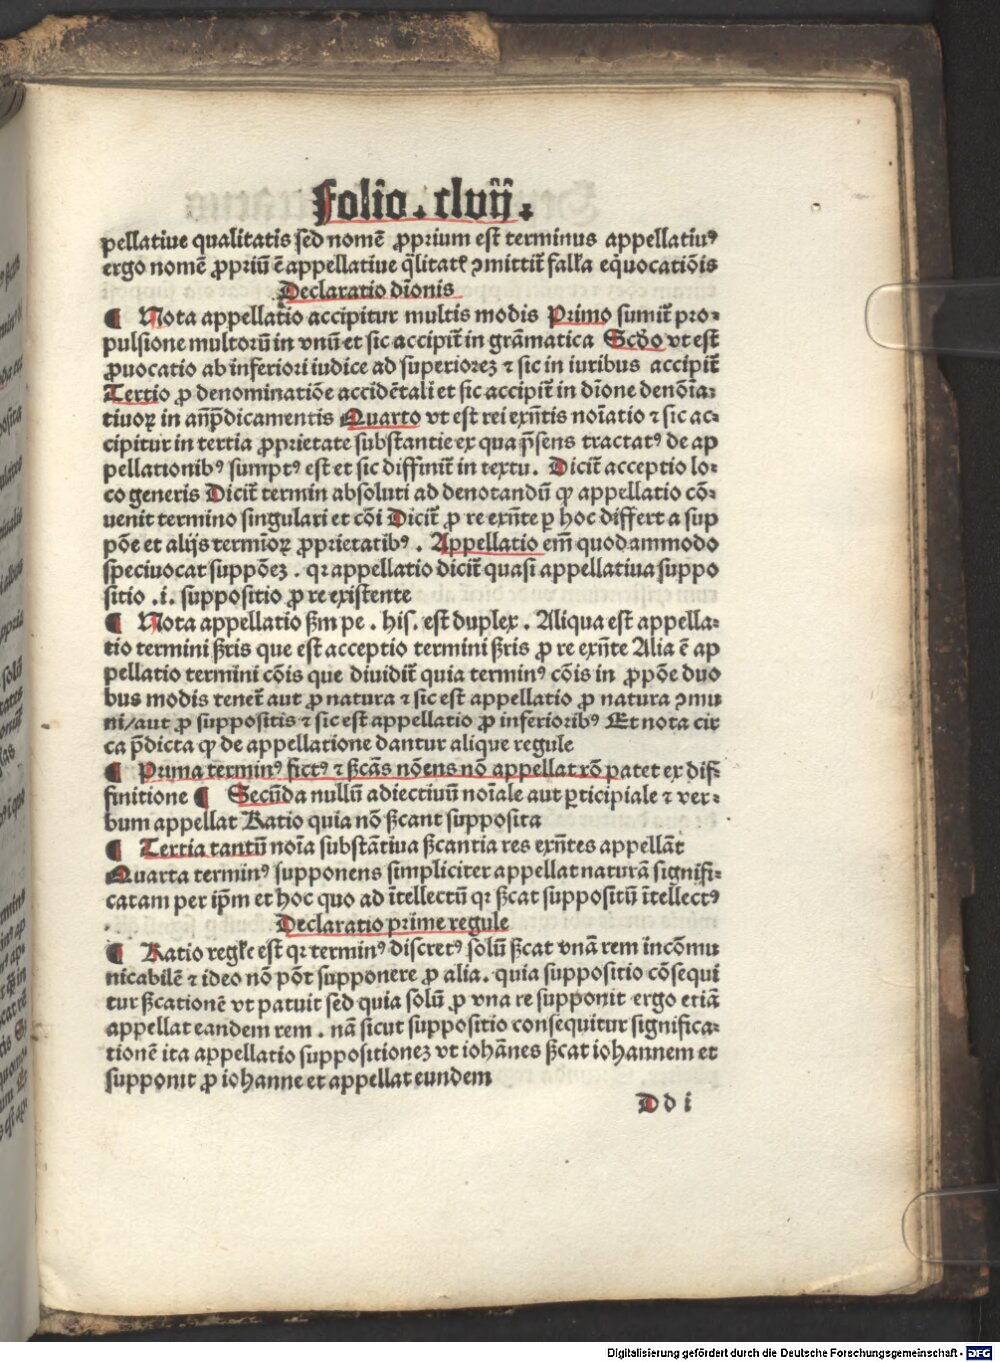 Folio. clvij.
pellatiue qualitatis sed nomē ꝓprium est terminus appellatiuꝰ
ergo nomē ꝓpriū ē appellatiue q̄litatꝭ ꝯmittit᷑ fall'a equocatiōis
Declaratio dīonis
¶ Nota appellatio accipitur multis modis Primo sumit᷑ pro⸗
pulsione multorū in vnū et sic accipit᷑ in grāmatica Scd̄o vt est
ꝓuocatio ab inferiori iudice ad superiorez ⁊ sic in iuribus accipit᷑
Tertio ꝓ denominatiōe accidētali et sic accipit᷑ in dīone denōīa⸗
tiuoꝝ in an̄p̄dicamentis Quarto vt est rei exn̄tis noīatio ⁊ sic ac⸗
cipitur in tertia ꝓprietate substantie ex qua p̄sens tractatꝰ de ap
pellationibꝰ sumptꝰ est et sic diffinit᷑ in textu. Dicit᷑ acceptio lo⸗
co generis Dicit᷑ termin absoluti ad denotandū ꝙ appellatio cō⸗
uenit termino singulari et cōi Dicit᷑ ꝓ re exn̄te ꝑ hoc differt a sup
pōe et alijs termīoꝝ ꝓprietatibꝰ. Appellatio em̄ quodammodo
speciuocat suppōez. qꝛ appellatio dicit᷑ quasi appellatiua suppo
sitio .i. suppositio ꝓ re existente
¶ Nota appellatio ẜm pe. his. est duplex. Aliqua est appella⸗
tio termini ẜris que est acceptio termini ẜris ꝓ re exn̄te Alia ē ap
pellatio termini cōis que diuidit᷑ quia terminꝰ cōis in ꝓpōe duo
bus modis tenet᷑ aut ꝓ natura ⁊ sic est appellatio ꝓ natura ꝯmu
ni/aut ꝓ suppositis ⁊ sic est appellatio ꝓ inferioribꝰ Et nota cir
ca p̄dicta ꝙ de appellatione dantur alique regule
¶ Prima terminꝰ fictꝰ ⁊ ẜcās nōens nō appellat rō patet ex dif⸗
finitione ¶ Secūda nullū adiectiuū noīale aut ꝑticipiale ⁊ ver⸗
bum appellat Ratio quia nō ẜcant supposita
¶ Tertia tantū noīa substātiua ẜcantia res exn̄tes appellāt
Quarta terminꝰ supponens simpliciter appellat naturā signifi⸗
catam per ip̄m et hoc quo ad ītellectū qꝛ ẜcat suppositū ītellectꝰ
Declaratio prime regule
¶ Ratio regl'e est qꝛ terminꝰ discretꝰ solū ẜcat vnā rem incōmu
nicabilē ⁊ ideo nō pōt supponere ꝓ alia. quia suppositio cōsequi
tur ẜcationē vt patuit sed quia solū ꝓ vna re supponit ergo etiā
appellat eandem rem. nā sicut suppositio consequitur significa⸗
tionē ita appellatio suppositionez vt iohānes ẜcat iohannem et
supponit ꝓ iohanne et appellat eundem
D d i
Digitalisierung gefördert durch die Deutsche Forschungsgemeinschaft - DFG